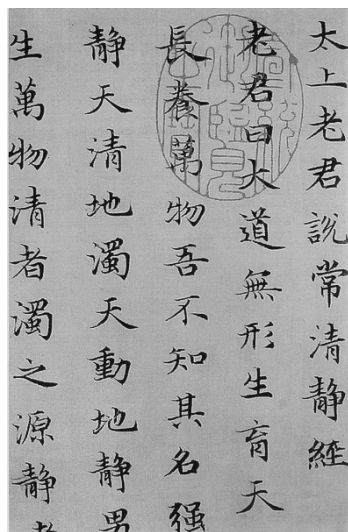 太上老君說常清靜經
老君曰大道無形生育天
長養萬物吾不知其名强
靜天清地濁天動地靜男
生萬物清者濁之源靜